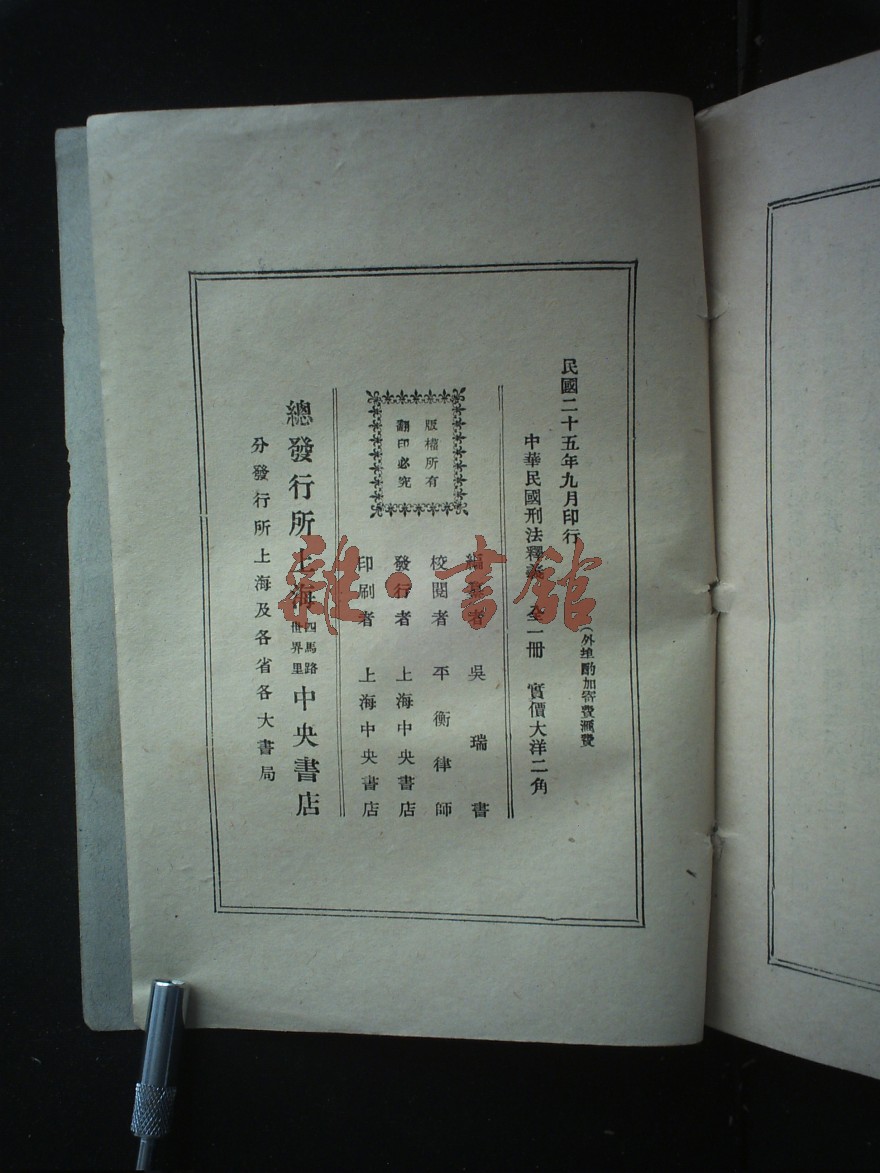 民國二十五年九月印行
(外埠酌加寄費滙費
中華民國刑法釋義 全一冊 實價大洋二角
版權所有
翻印必究
編纂者 吳瑞書
校閱者 平衡律師
發行者 上海中央書店
印刷者 上海中央書店
總發行所上海四馬路世界里中央書店
分發行所上海及各省各大書局
雜·書館